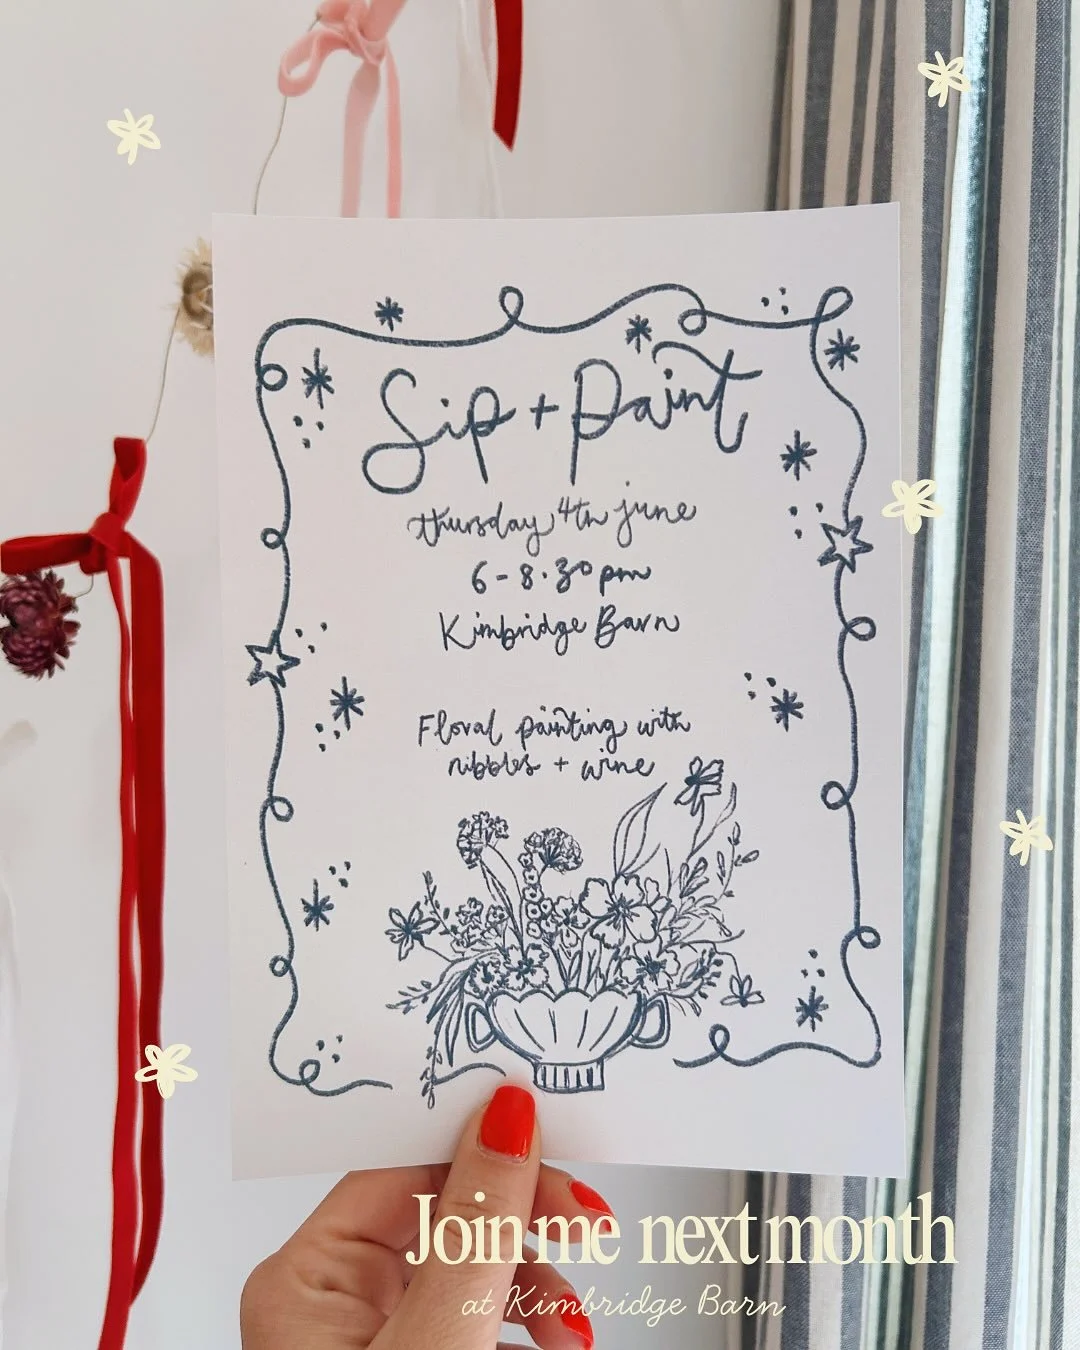 Sip + Paint
thursday 4th june
6-8.30pm
Kimbridge Barn
Floral painting with
nibbles + wine
Join me next month
at Kimbridge Barn